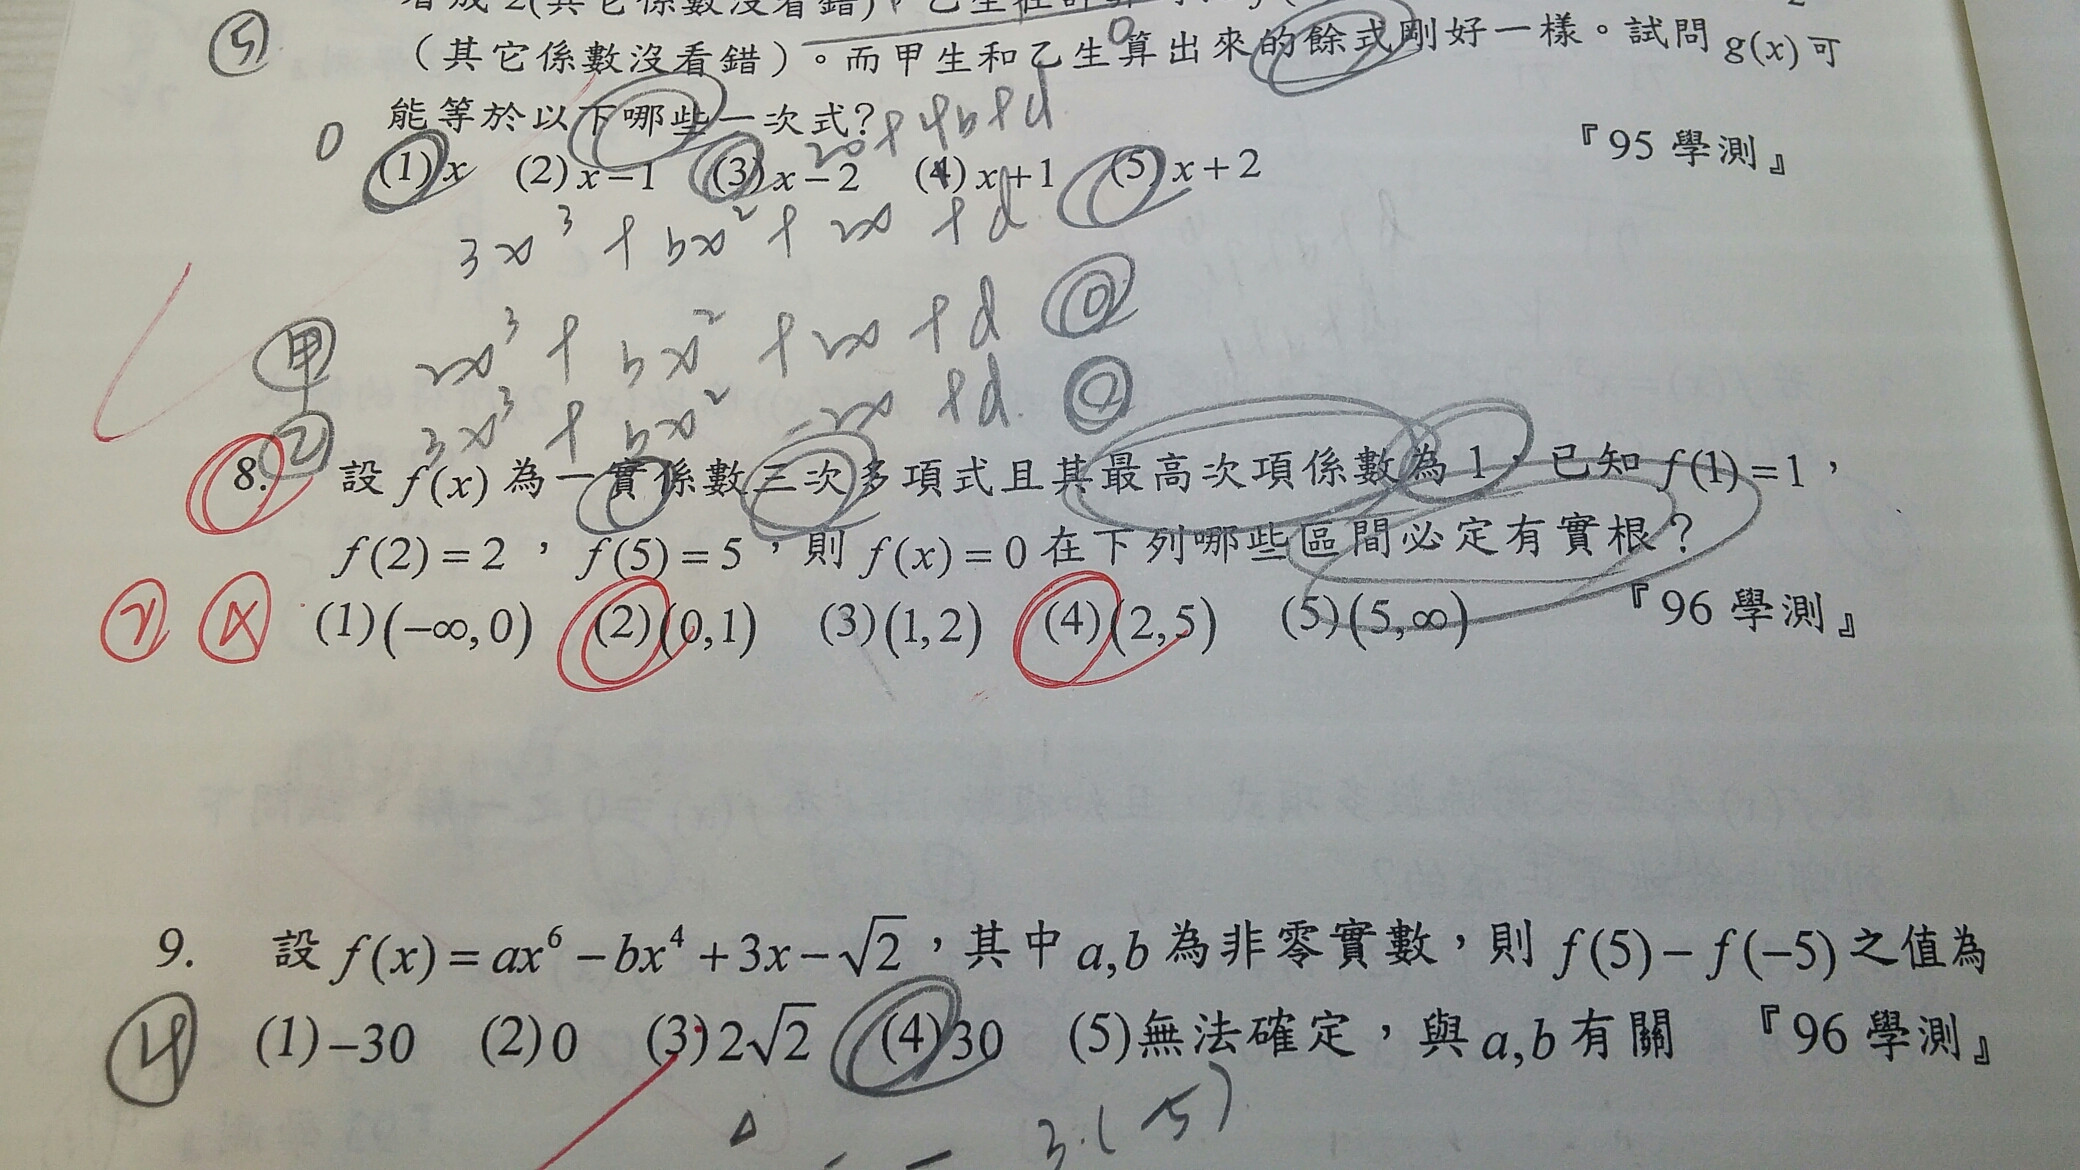 看成 2(其它係數沒看錯),乙生在計算
⑤
(其它係數沒看錯)。而甲生和乙生算出來的餘式剛好一樣。試問 g(x) 可
能等於以下哪些一次式?
0
0
+4b+d
(1) x (2) x−1 (3) x−2 (4) x+1 (5) x+2 『95 學測』
3x³ + bx² + 2x + d
甲 2x³ + bx² + 2x + d
乙 3x³ + bx² − 2x + d
8. 設 f(x) 為一實係數三次多項式且其最高次項係數為 1,已知 f(1)=1,
f(2)=2, f(5)=5,則 f(x)=0 在下列哪些區間必定有實根?
(1)(−∞,0) (2)(0,1) (3)(1,2) (4)(2,5) (5)(5,∞) 『96 學測』
9. 設 f(x)=ax⁶−bx⁴+3x−√2,其中 a,b 為非零實數,則 f(5)−f(−5) 之值為
4 (1)−30 (2)0 (3)2√2 (4)30 (5)無法確定,與 a,b 有關 『96 學測』
3·(5)